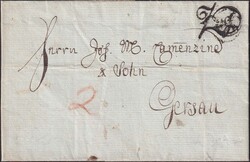 Herrn Jos. M. Camenzind
& Sohn
Gersau
2